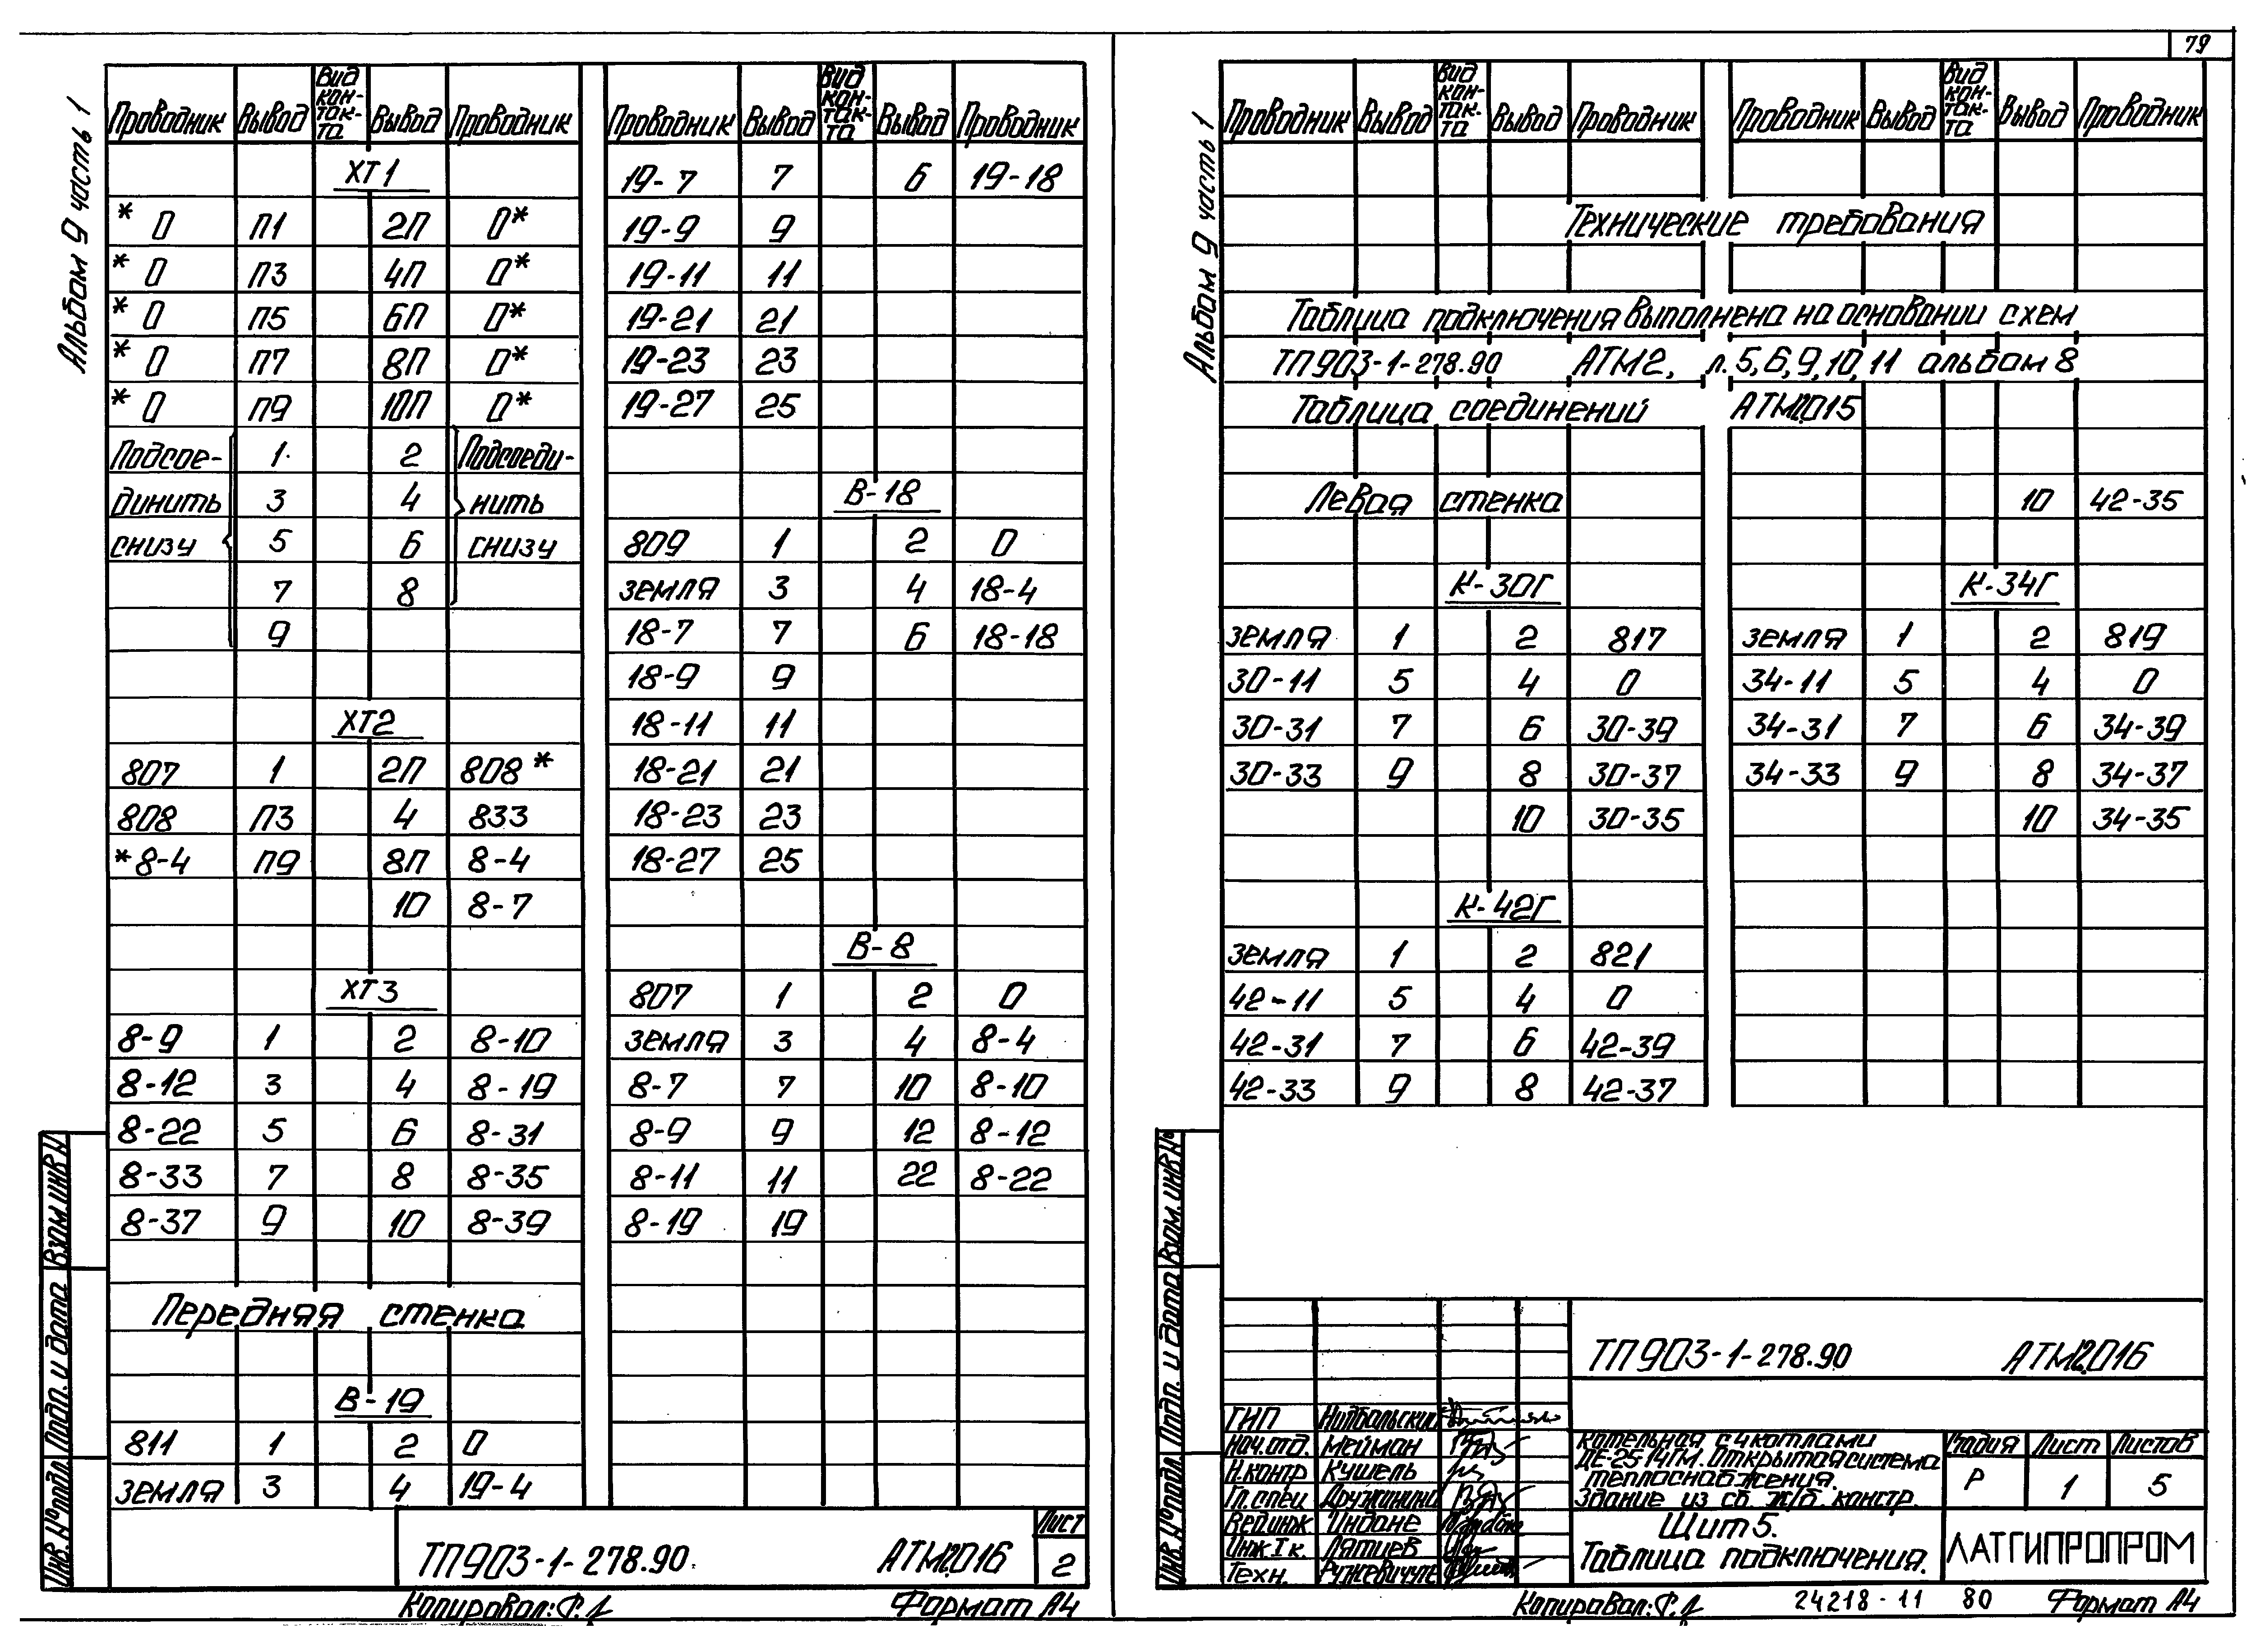 79
Альбом 9 часть 1
Проводник Вывод Вид кон-так-та Вывод Проводник
ХТ1
* 0 П1 2П 0*
* 0 П3 4П 0*
* 0 П5 6П 0*
* 0 П7 8П 0*
* 0 П9 10П 0*
Подсое- 1 2 Подсоеди-
динить 3 4 нить
снизу 5 6 снизу
7 8
9
ХТ2
807 1 2П 808*
808 П3 4 833
*8-4 П9 8П 8-4
10 8-7
ХТ3
8-9 1 2 8-10
8-12 3 4 8-19
8-22 5 6 8-31
8-33 7 8 8-35
8-37 9 10 8-39
Передняя стенка
В-19
811 1 2 0
земля 3 4 19-4
Проводник Вывод Вид кон-так-та Вывод Проводник
19-7 7 6 19-18
19-9 9
19-11 11
19-21 21
19-23 23
19-27 25
В-18
809 1 2 0
земля 3 4 18-4
18-7 7 6 18-18
18-9 9
18-11 11
18-21 21
18-23 23
18-27 25
В-8
807 1 2 0
земля 3 4 8-4
8-7 7 10 8-10
8-9 9 12 8-12
8-11 11 22 8-22
8-19 19
Взам. инв N
Подп. и дата
Инв. № подл.
ТП903-1-278.90 АТМ2.016
Лист
2
Копировал:
Формат А4
Альбом 9 часть 1
Проводник Вывод Вид кон-так-та Вывод Проводник
Проводник Вывод Вид кон-так-та Вывод Проводник
Технические требования
Таблица подключения выполнена на основании схем
ТП903-1-278.90 АТМ2, л.5,6,9,10,11 альбом 8
Таблица соединений АТМ2.015
Левая стенка
К-30Г
земля 1 2 817
30-11 5 4 0
30-31 7 6 30-39
30-33 9 8 30-37
10 30-35
К-42Г
земля 1 2 821
42-11 5 4 0
42-31 7 6 42-39
42-33 9 8 42-37
10 42-35
К-34Г
земля 1 2 819
34-11 5 4 0
34-31 7 6 34-39
34-33 9 8 34-37
10 34-35
Взам. инв №
Подп. и дата
Инв. № подл.
ТП903-1-278.90 АТМ2.016
ГИП
Нач.отд. Мейман
Н.контр Кушель
Гл.спец Дружинина
Вед.инж Индане
Инж I к.
Техн.
Котельная с 4 котлами
ДЕ-25-14ГМ. Открытая система
теплоснабжения.
Здание из сб. ж/б. констр.
Стадия Лист Листов
Р 1 5
Щит 5.
Таблица подключения.
ЛАТГИПРОПРОМ
Копировал:
24218-11 80
Формат А4